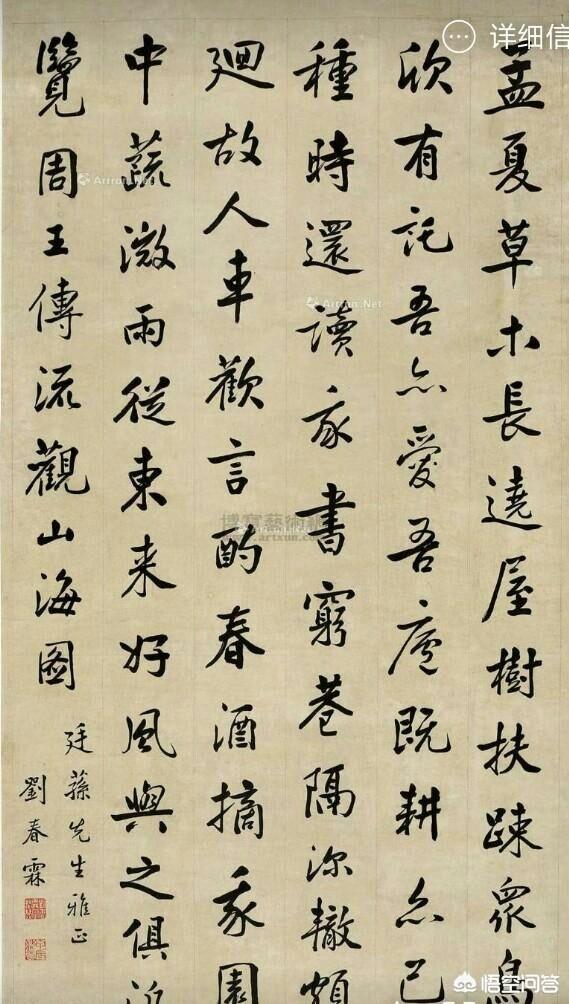 孟夏草木長遶屋樹扶疎眾鳥
欣有託吾亦愛吾廬既耕亦已
種時還讀我書窮巷隔深轍頗
廻故人車歡言酌春酒摘我園
中蔬微雨從東来好風與之俱
覽周王傳流觀山海圖
廷蓀先生雅正
劉春霖
详细信
Artxun.Net
博寶藝術網
www.artxun.com
悟空问答